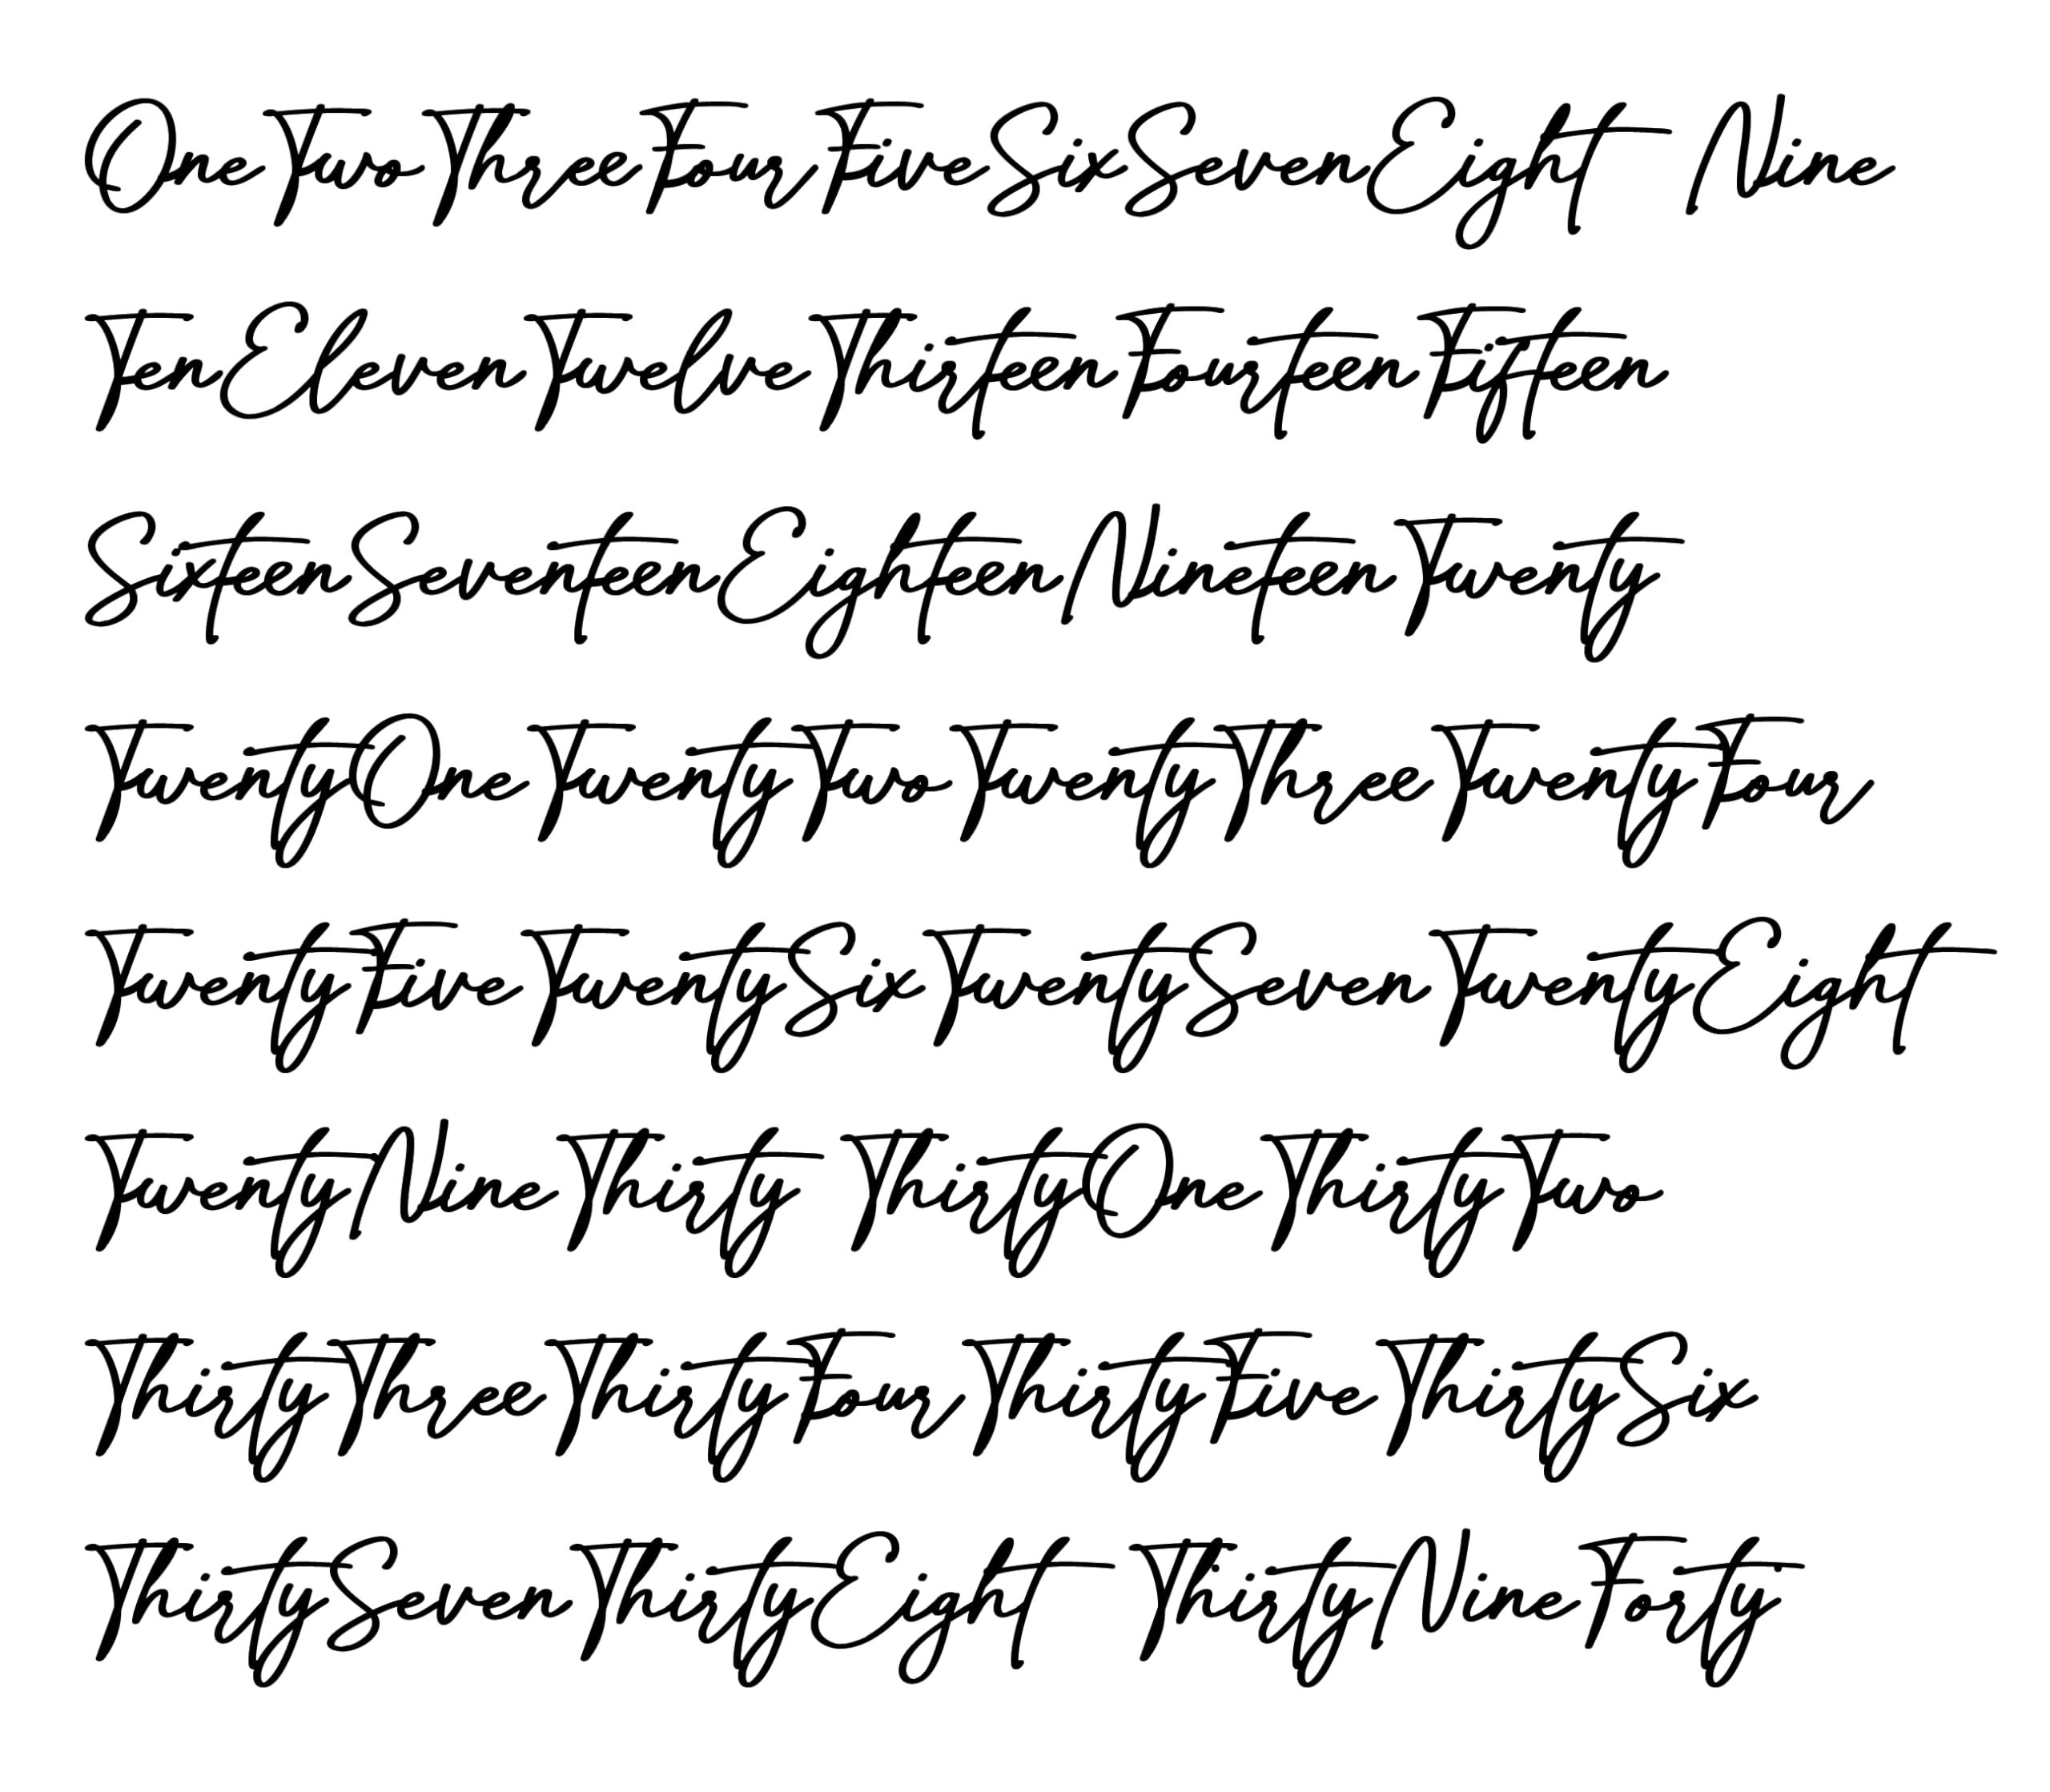 One Two Three Four Five Six Seven Eight Nine
Ten Eleven Twelve Thirteen Fourteen Fifteen
Sixteen Seventeen Eighteen Nineteen Twenty
Twenty One Twenty Two Twenty Three Twenty Four
Twenty Five Twenty Six Twenty Seven Twenty Eight
Twenty Nine Thirty Thirty One Thirty Two
Thirty Three Thirty Four Thirty Five Thirty Six
Thirty Seven Thirty Eight Thirty Nine Forty